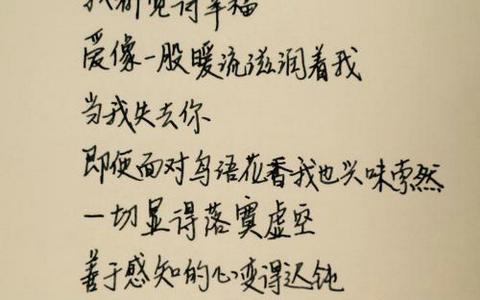 我都觉得幸福
爱像一股暖流滋润着我
当我失去你
即便面对鸟语花香我也兴味索然
一切显得落寞虚空
善于感知的心变得迟钝